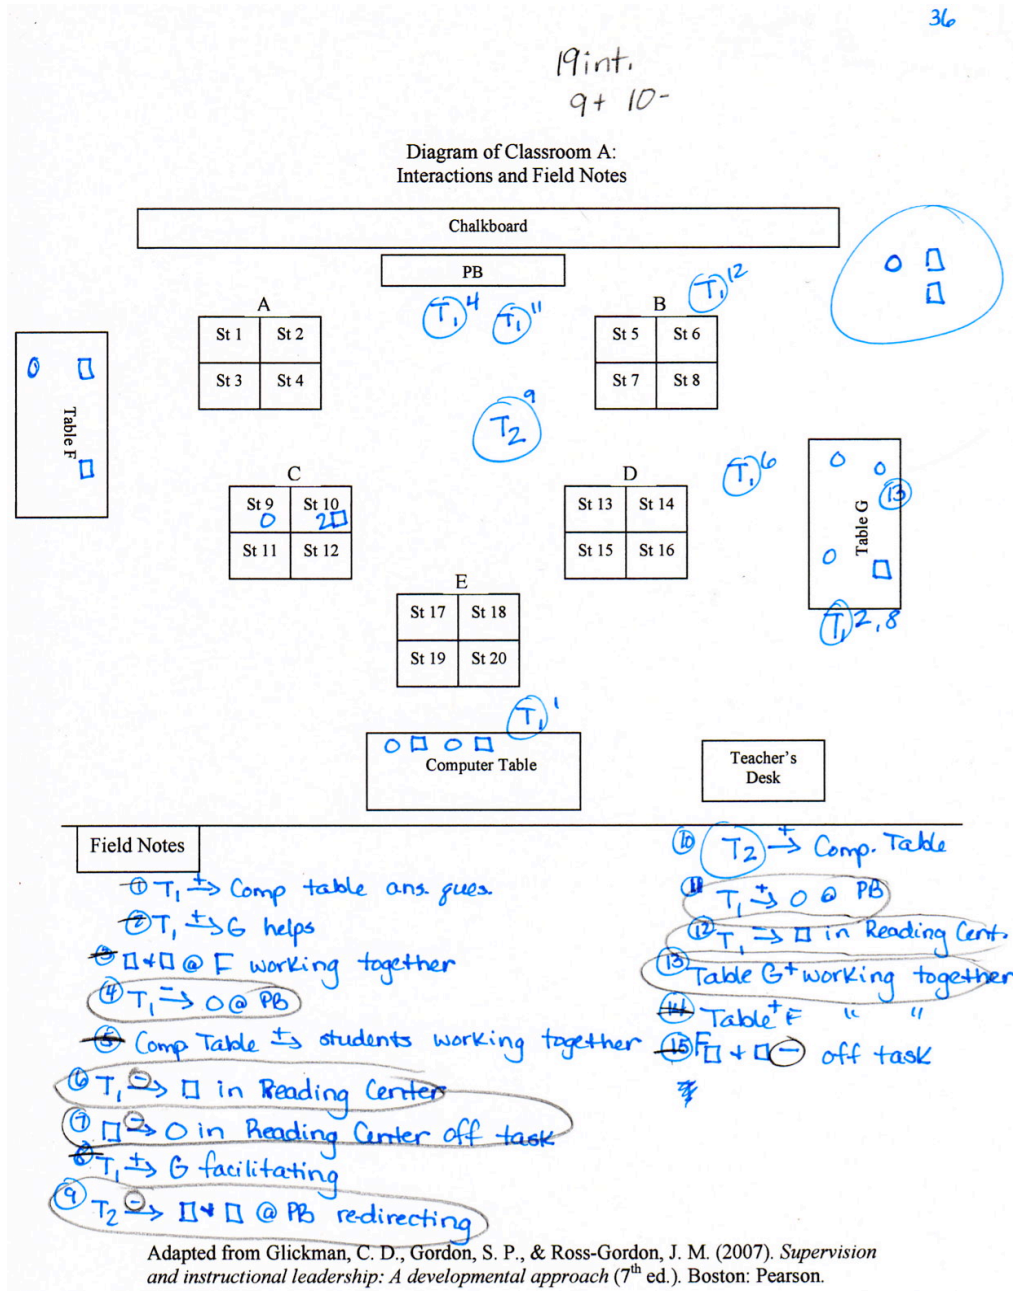 36
19 int.
9+ 10-
Diagram of Classroom A:
Interactions and Field Notes
Chalkboard
PB
T1 4
T1 11
T1 12
A
St 1 St 2
St 3 St 4
B
St 5 St 6
St 7 St 8
T2 9
Table F
C
St 9 St 10
2
St 11 St 12
D
St 13 St 14
St 15 St 16
T1 6
13
Table G
T1 2,8
E
St 17 St 18
St 19 St 20
T1 1
Computer Table
Teacher's
Desk
Field Notes
① T1 +→ Comp table ans. ques.
② T1 +→ G helps
③ □+□ @ F working together
④ T1 -→ O @ PB
⑤ Comp Table +→ students working together
⑥ T1 -→ □ in Reading Center
⑦ □ -→ O in Reading Center off task
⑧ T1 +→ G facilitating
⑨ T2 -→ □+□ @ PB redirecting
⑩ T2 +→ Comp. Table
⑪ T1 +→ O @ PB
⑫ T1 -→ □ in Reading Cent.
⑬ Table G + working together
⑭ Table + F " "
⑮ F □ + □ - off task
Adapted from Glickman, C. D., Gordon, S. P., & Ross-Gordon, J. M. (2007). Supervision
and instructional leadership: A developmental approach (7th ed.). Boston: Pearson.